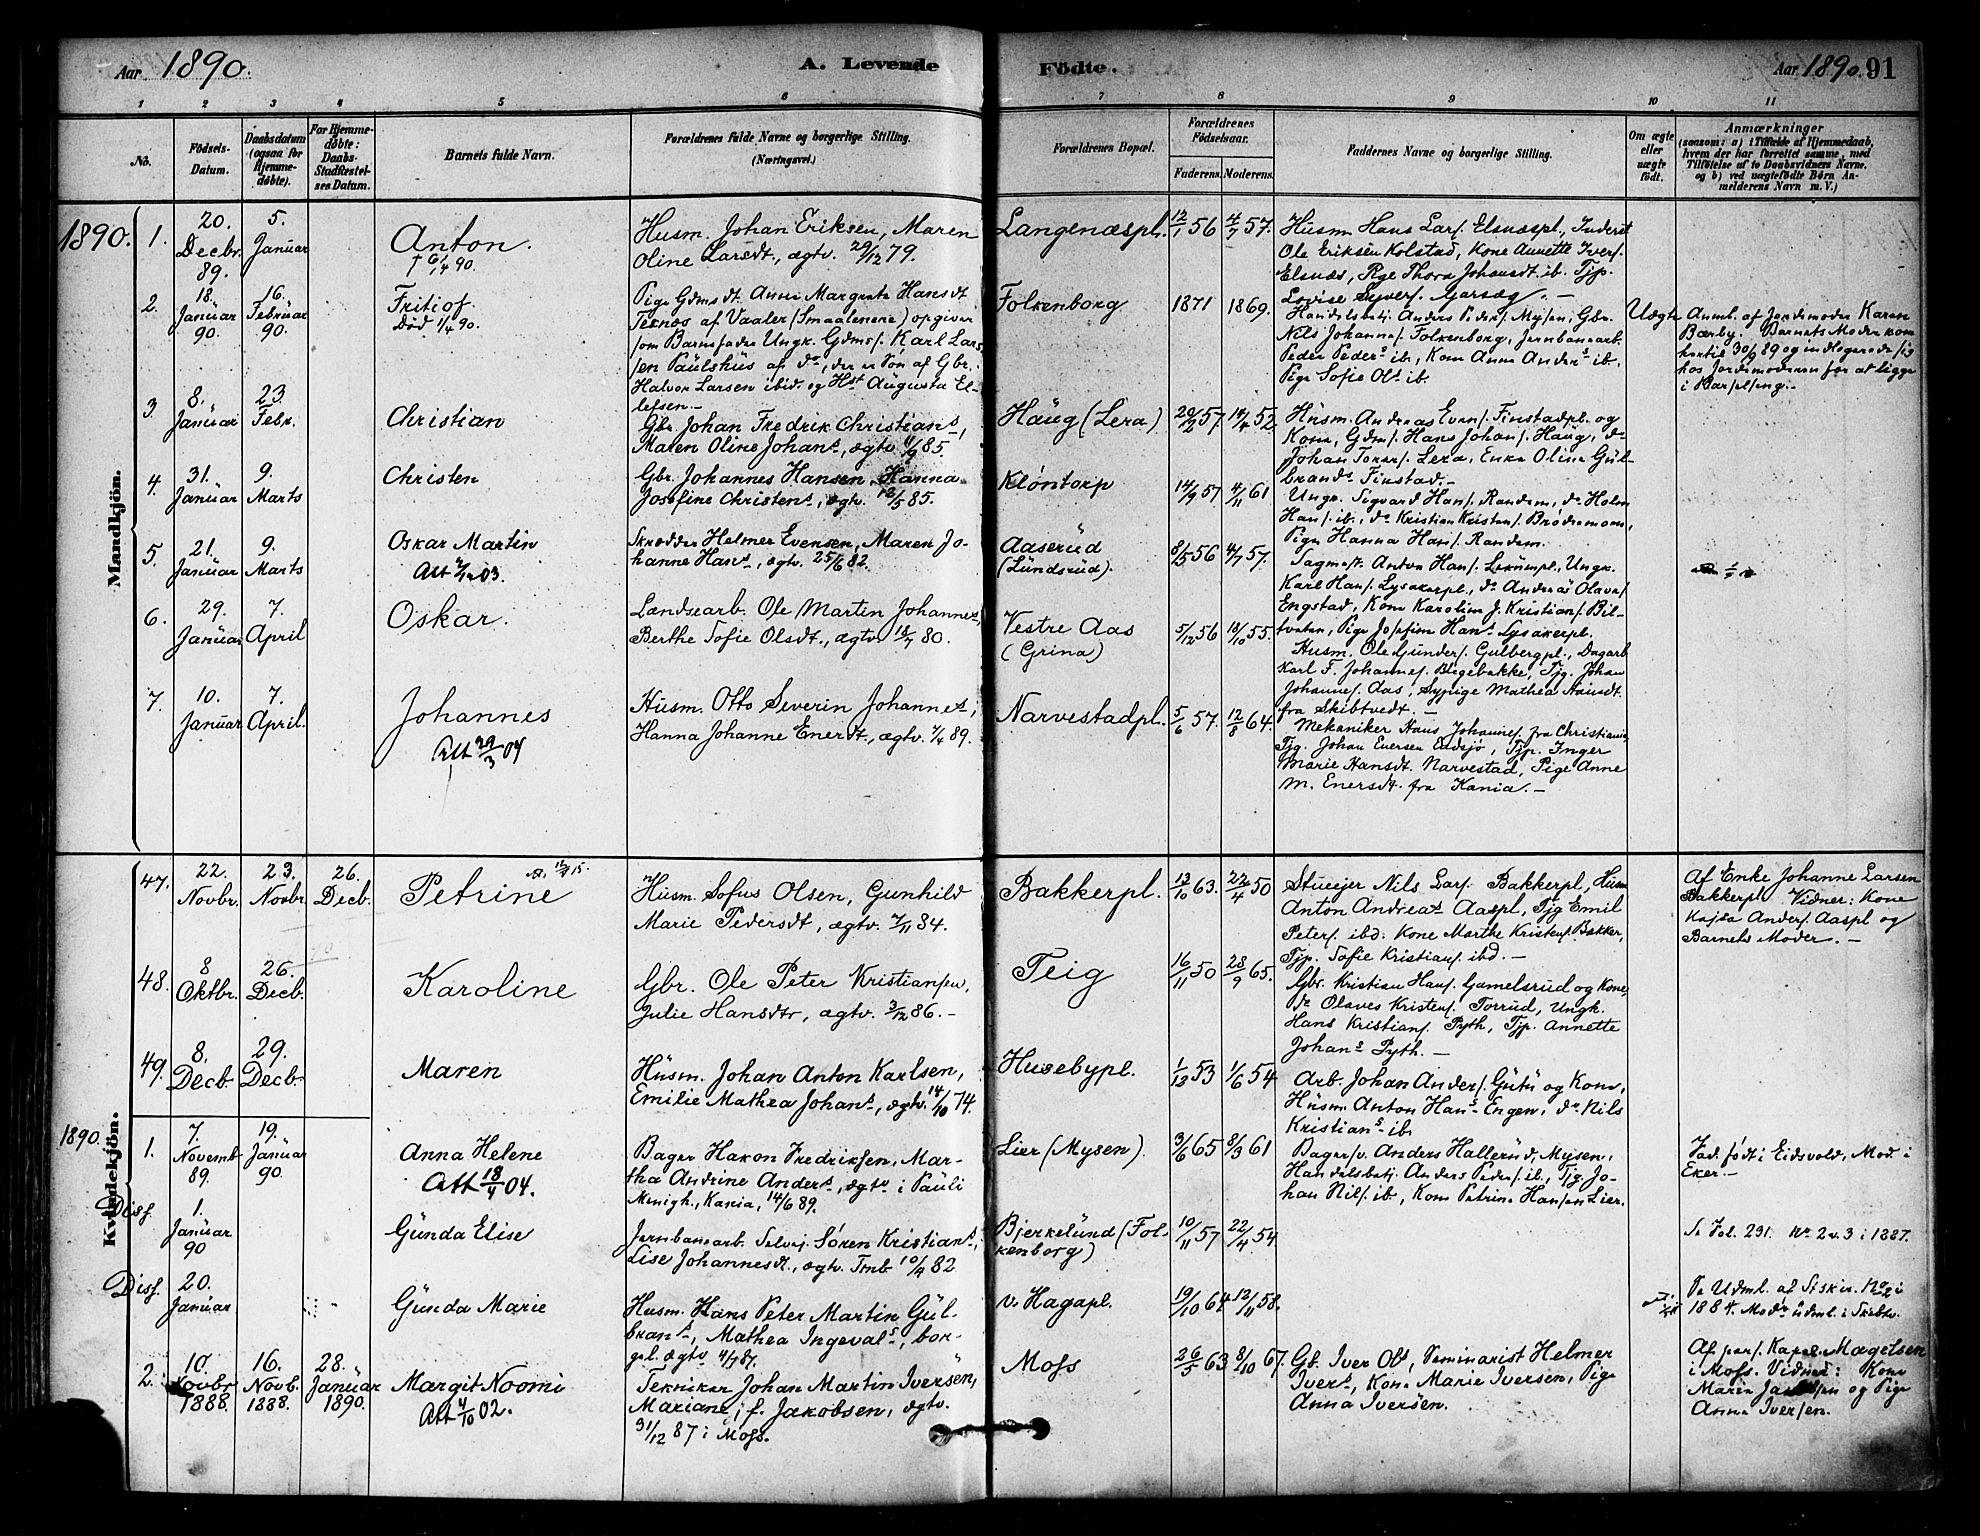 Aar 1890.
A. Levende Födte.
Aar 1890. 91
1 2 3 4 5 6 7 8 9 10 11
No.
Födsels-
Datum.
Daabsdatum
(ogsaa for
Hjemme-
döbte).
For Hjemme-
döbte:
Daabs-
Stadfæstel-
ses Datum.
Barnets fulde Navn.
Forældrenes fulde Navne og borgerlige Stilling.
(Næringsvei.)
Forældrenes Bopæl.
Forældrenes
Födselsaar.
Faderens. Moderens.
Faddernes Navne og borgerlige Stilling.
Om ægte
eller
uægte
født.
Anmærkninger
(saasom: a) i Tilfælde af Hjemmedaab,
hvem der har forrettet samme, med
Tilføielse af to Daabsvidners Navne,
og b) ved uægtefödte Börn An-
melderens Navn m. V.)
Mandkjön.
1890. 1.
20.
Decbr.
89.
5.
Januar
Anton.
† 6/4 90.
Husm. Johan Eriksen, Maren
Oline Larsdt., ægtv. 29/12 79.
Langenæspl.
12/1 56
4/7 57.
Husm. Hans Lars. Elsnæspl., Inderst
Ole Eriksen Kolstad, Kone Annette Ivers.
Elsnæs, Pige Thora Johansdt. ib. Tjp.
Lovise Syvers.
2.
18.
Januar
90.
16.
Februar
90.
Fritiof
Död 1/4 90.
Pige Gdmsdt. Anne Margrete Hansdt
Texnes af Vaaler (Smaalenene) opgiver
som Barnefader Ungk. Gdms. Karl Lar-
sen Paulshus af do, der er Søn af Gbr.
Halvor Larsen ibid. og Hst Augusta El-
lefsen.—
Folkenborg
1871
1869.
Handelsbetj. Anders Peders. Mysen, Gbr.
Nils Johannes. Folkenborg, Jernbanearb.
Peder Peders ib., Kone Anna Anders ib.
Pige Sofie Ols ib.
Uægte
Anml. af Jordemoder Karen
Bærby. Barnets Moder kom
hertil 30/9 89 og indlogerede sig
hos Jordemoderen for at ligge
i Barselseng.—
3.
8.
Januar
23.
Febr.
Christian
Gbr. Johan Fredrik Christians,
Maren Oline Johans, ægtv. 4/9 85.
Haug (Lera)
20/2 57
14/4 52
Husm. Andreas Evens. Finstadpl. og
Kone, Gdms. Hans Johans. Haug, do
Johan Torers. Lera, Enke Oline Gul-
brands Finstad.—
4.
31.
Januar
9.
Marts
Christen
Gbr. Johannes Hansen, Hanna
Josefine Christens, ægtv. 12/5 85.
Kløntorp
14/9 57
4/11 61
Ungk. Sigvard Hans. Randem, do Holm
Hans. ib., do Kristian Kristens. Brødremoen,
Pige Hanna Hans. Randem.
5.
21.
Januar
9.
Marts
Oskar Martin
Skrædder Helmer Evensen, Maren Jo-
hanne Hans, ægtv. 25/6 82.
Aaserud
(Lundsrud).
8/5 56
4/7 57.
Sagmest. Anton Hans. Lekumpl., Ungk.
Karl Hans. Lysakerpl., do Andreas Olaves
Engstad, Kone Karoline J. Kristians. Bil-
tvaten, Pige Josefine Hans. Lysakerpl.
6.
29.
Januar
7.
April
Oskar.
Landsearb. Ole Martin Johannes,
Berthe Sofie Olsdt., ægtv. 18/7 80.
Vestre Aas
(Grina)
5/12 56
18/10 55.
Husm. Ole Gunders. Gulbergpl., Dagarb.
Karl F. Johannes. Bigebakke, Tjg. Johan
Johannes. Aas, Sypige Mathea Hansdt.
fra Skibtvedt.—
7.
10.
Januar
7.
April.
Johannes
Att 29/3 04
Husm. Otto Severin Johannes,
Hanna Johanne Enersdt., ægtv. 7/4 89.
Narvestadpl.
5/6 57.
12/8 64.
Mekaniker Hans Johannes. fra Christiania
Tjg. Johan Eversen Eidsjø, Tjp. Inger
Marie Hansdt. Narvestad, Pige Anne
M. Enersdt. fra Kania.—
Kvindekjön.
47.
22.
Novbr.
23.
Novbr.
26.
Decb.
Petrine
Husm. Sofus Olsen, Gunhild
Marie Pedersdt, ægtv. 2/11 84.
Bakkerpl.
13/10 63.
22/4 50
Stueejer Nils Lars. Bakkerpl, Husm
Anton Andreas Aaspl., Tjg Emil
Peters. ibd. Kone Marthe Kristens. Bakker,
Tjp. Sofie Kristians. ibd.—
Af Enke Johanne Larsen
Bakkerpl. Vidner: Kone
Kajsa Anders. Aaspl og
Barnets Moder.—
48.
8
Oktbr.
26.
Decb.
Karoline
Gbr. Ole Peter Kristiansen,
Julie Hansdtr, ægtv. 3/12 86.—
Teig
16/11 50
28/9 65.
Gbr. Kristian Hans. Gamelsrud og Kone,
do Olaves Kristens. Torrud, Ungk.
Hans Kristians. Pyth, Tjp. Annette
Johans Pyth.—
49.
8.
Decb.
29.
Decb.
Maren
Husm. Johan Anton Karlsen,
Emilie Mathea Johans, ægtv. 14/10 74.
Husebypl.
1/12 53
1/6 54
Arb. Johan Anders. Gutu og Kone,
Husm. Anton Hans Engen, do Nils
Kristians ib.
1890. 1.
7.
Novemb.
89.
19.
Januar
90.
Anna Helene
Att 18/4 04.
Bager Hakon Fredriksen, Mar-
tha Andrine Anders, ægtv. i Pauli
Menigh., Kania, 14/6 89.
Lier (Mysen).
3/6 65
8/3 61
Bagersv. Anders Hallerud, Mysen,
Handelsbetj. Anders Peders. ib., Tjg. Jo-
han Nils. ib., Kone Petrine Hansen Lier.
Fad. født i Eidsvold, Mod. i
Eker.—
Diss.
1.
Januar
90
Gunda Elise
Jernbanearb. Selvej. Søren Kristians,
Lise Johannesdt., ægtv. Tmb. 10/4 82
Bjerkelund (Fol-
kenborg)
10/11 57
22/4 54
Se Fol. 231. No 2 & 3 i 1887.
Diss.
20.
Januar
Gunda Marie
Husm. Hans Peter Martin Gul-
brans, Mathea Ingevals, bor-
gel. ægtv. 4/7 87.
v. Hagapl.
19/10 64
12/11 58.
Fa Udml. af Stskir.
1884. Modr udml. i Skibtv.
2.
10.
Novbr
1888.
16.
Novb.
1888.
28.
Januar
1890.
Margit Noomi
Att 4/10 02.
Tekniker Johan Martin Iversen,
Mariane, f. Jakobsen, ægtv.
31/12 87 i Moss.
Moss
26/5 63
8/10 67.
Gb. Iver Ols, Seminarist Helmer
Ivers, Kone Marie Iversen, Pige
Anna Iversen.
Af pers. Kapel. Magelssen
i Moss. Vidner: Kone
Marie og Pige
Anna Iversen.